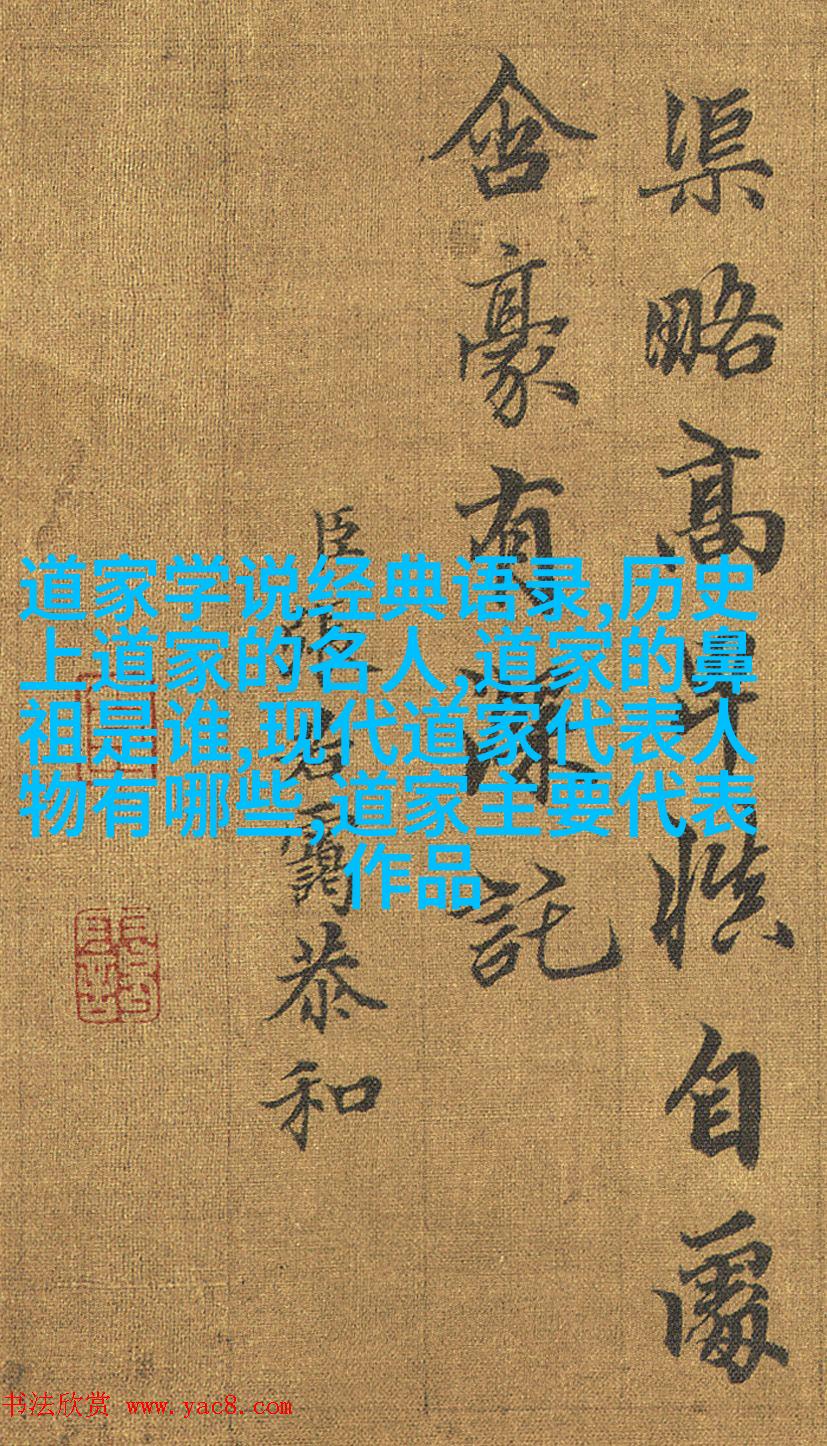 渠略高昇慎自處
含豪有深託
臣張若靄恭和
道家学说经典语录,历史
上道家的名人,道家的鼻
祖是谁,现代道家代表人
物有哪些,道家主要代表
作品
书法欣赏 www.yac8.com